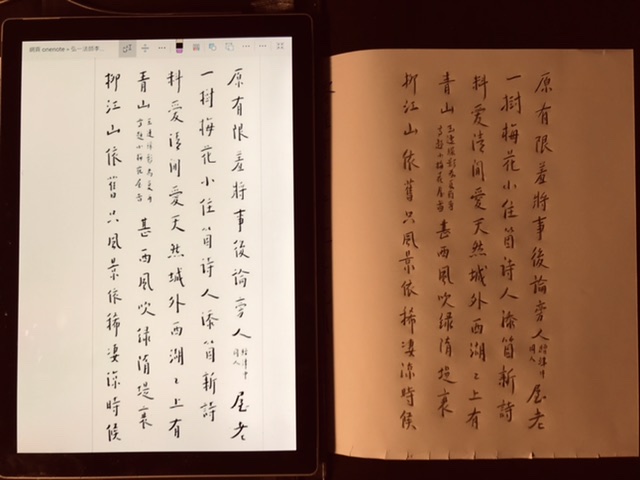 網頁 onenote » 弘一法師李...
原有限羞將事後論旁人
屋老
一樹梅花小住箇詩人添箇新詩
料愛清閒愛天然城外西湖湖上有
青山
甚西風吹綠隋堤衰
柳江山依舊只風景依稀淒涼時候
原有限羞將事後論旁人
屋老
一樹梅花小住箇詩人添箇新詩
料愛清閒愛天然城外西湖湖上有
青山
甚西風吹綠隋堤衰
柳江山依舊只風景依稀淒涼時候